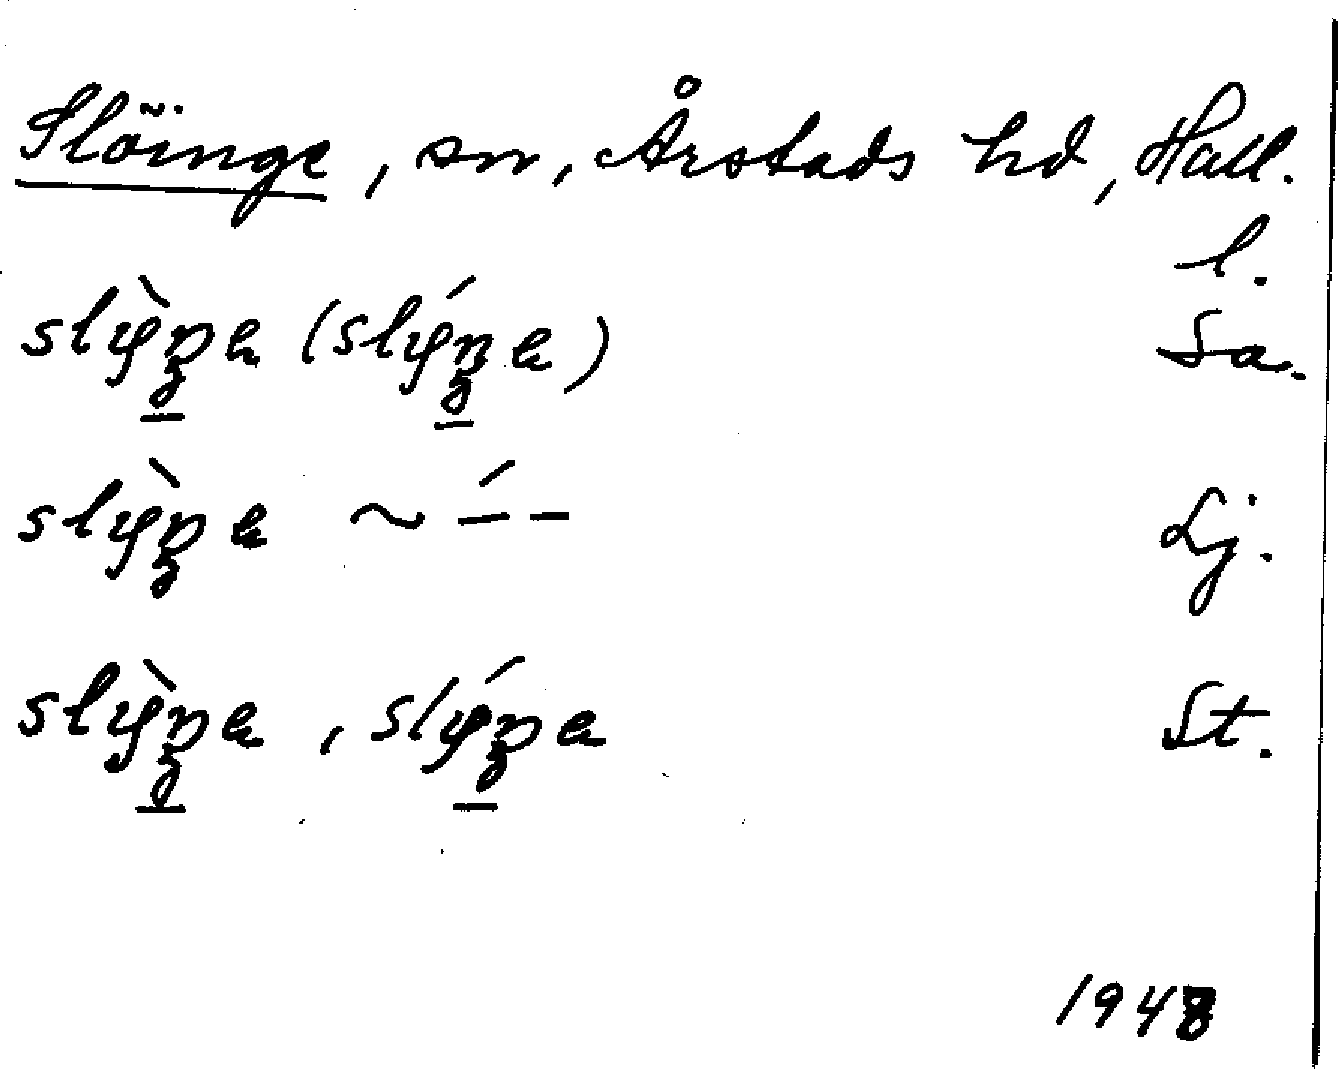 Slöinge, sn, Årstads hd, Hall.
l.
slỳŋe (slýŋe) Sa.
slỳŋe ~ –́ – Lj.
slỳŋe, slýŋe St.
1948